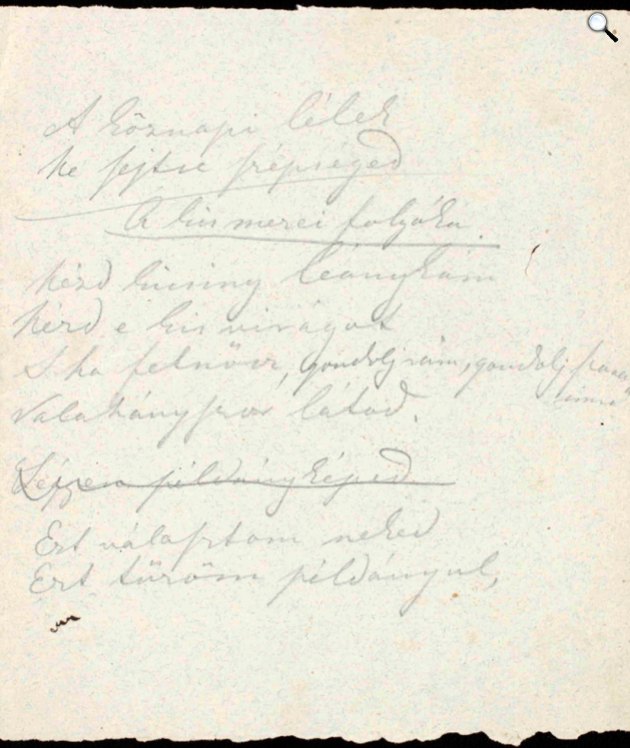 A köznapi lélek
ne sejtse szépséged
A kis mezei folyóka.
Nézd kicsiny leánykám
Nézd e kis virágot
S ha felnősz, gondolj rám, gondolj szavaimra
Valahányszor látod.
Légyen példányképed
Ezt választom neked
Ezt tűzöm példányul,